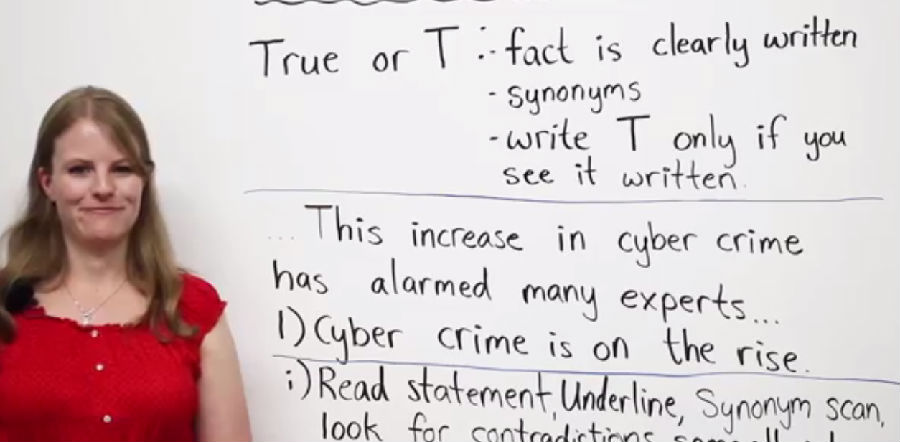 True or T :- fact is clearly written
- synonyms
- write T only if you
see it written.
... This increase in cyber crime
has alarmed many experts...
1) Cyber crime is on the rise.
i) Read statement, Underline, Synonym scan,
look for contradictions